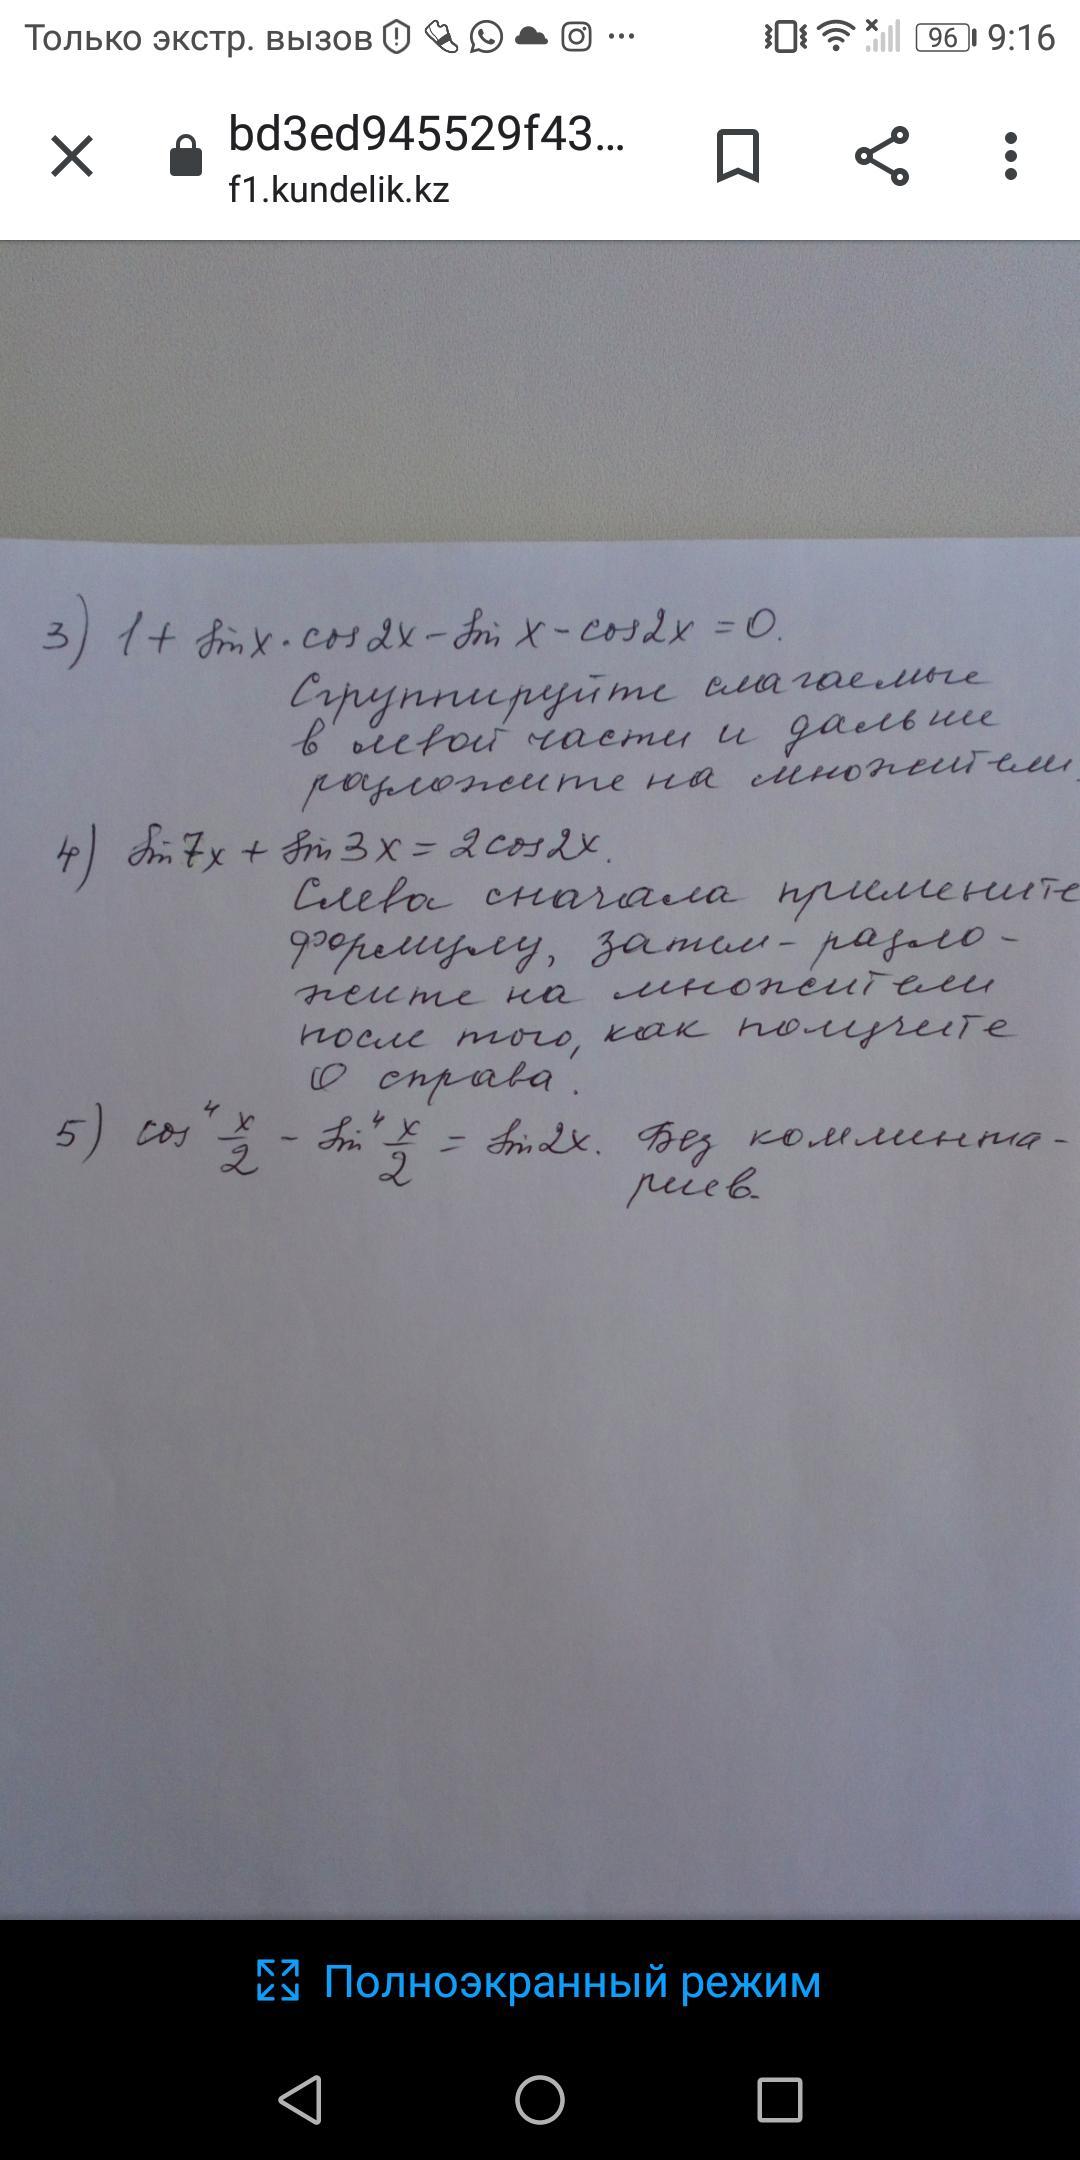 Только экстр. вызов
96 9:16
bd3ed945529f43...
f1.kundelik.kz
3) 1 + sin x · cos 2x - sin x - cos 2x = 0.
Сгруппируйте слагаемые
в левой части и дальше
разложите на множители.
4) sin 7x + sin 3x = 2 cos 2x.
Слева сначала примените
формулу, затем - разло-
жите на множители
после того, как получите
0 справа.
5) cos⁴ x/2 - sin⁴ x/2 = sin 2x. Без комминта-
риев.
Полноэкранный режим